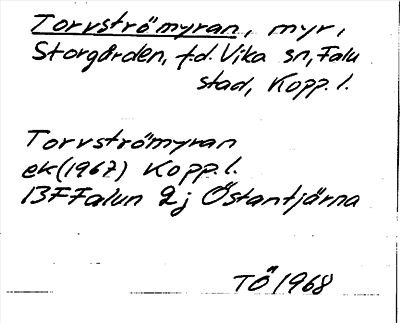 Torvströmyran, myr,
Storgården, f.d. Vika sn, Falu
stad, Kopp. l.
Torvströmyran
ek(1967) Kopp.l.
13FFalun 2j Östantjärna
TÖ 1968